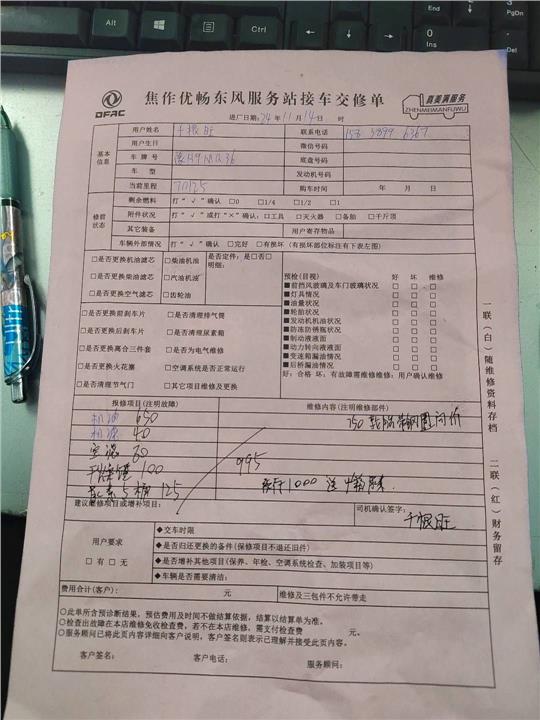 Ins
0
PgDn
DFAC
焦作优畅东风服务站接车交修单
真美满服务
ZHENMEIMANFUWU
进厂日期: 24 年 11 月 14 日 时
基本信息
用户姓名
联系电话
用户生日 微信号码
车牌号 底盘号码
车型 发动机号码
当前里程 70125 购车时间 年 月 日
修前状态
剩余燃料 打“√”确认 □0 □1/4 □1/2 □1
附件状况 打“√”或打“×”确认: □工具 □灭火器 □备胎 □千斤顶
其它装备 用户寄存物品
车辆外部情况 打“√”确认 □完好 □有损坏(有损坏部位标注有下表左图)
□是否更换机油滤芯 □柴油机油 是否定件: 是□否□
明细:
□是否更换柴油滤芯 □汽油机油
□是否更换空气滤芯 □齿轮油
□是否更换前刹车片 □是否清理排气筒
□是否更换后刹车片 □是否清理尿素箱
□是否更换离合三件套 □是否为电气维修
□是否更换火花塞 □空调系统是否正常运行
□是否清理节气门 □其它项目维修及更换
预检(目视) 好 坏 维修
■前挡风玻璃及车门玻璃状况 □ □ □
■灯具情况 □ □ □
■油量状况 □ □ □
■轮胎状况 □ □ □
■发动机机油状况 □ □ □
■防冻防锈瓶状况 □ □ □
■制动液液面 □ □ □
■动力转向液液面 □ □ □
■变速箱漏油情况 □ □ □
■后桥漏油情况 □ □ □
好: 合格 坏: 有故障需维修维修: 用户确认维修
报修项目(注明故障) 维修内容(注明维修部件)
机油 650
机滤 40
空滤 80
100
125
995
750 轮胎带钢圈问价
1000 送
建议维修项目或增补项目:
司机确认签字:
用户要求
□有 □无
◆交车时限
◆是否归还更换的备件(保修项目不退还旧件)
◆是否增补其他项目(保养、年检、空调系统检查、加装项目等)
◆车辆是否需要清洁:
费用合计(客户): 元 维修及三包件不允许带走
○此单所含预诊断结果,预估费用及时间不做结算依据,结算以结算单为准。
○检查出故障在本店维修免收检查费,若不在本店维修,需支付检查费 元。
○服务顾问已将此页内容详细向客户说明,客户签名则表示已理解并接受此页内容。
客户签名: 客户电话: 服务顾问:
一联(白)随维修资料存档
二联(红)财务留存